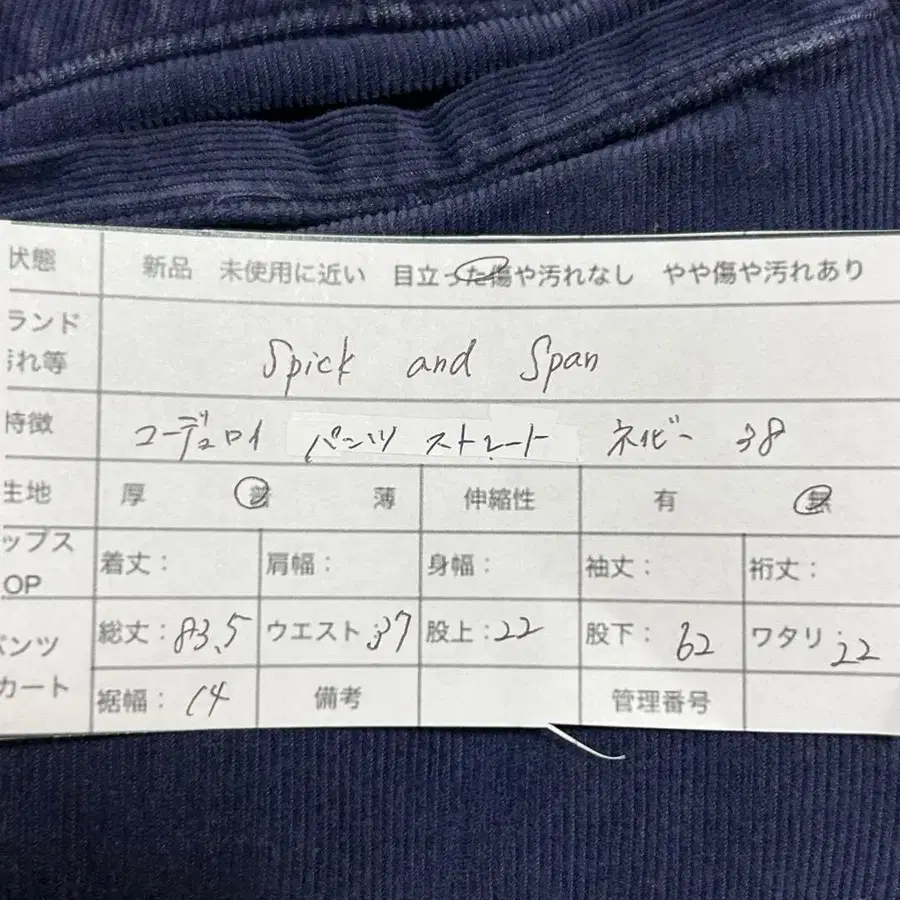 状態 新品 未使用に近い 目立った傷や汚れなし やや傷や汚れあり
ランド
汚れ等 Spick and Span
特徴 コーデュロイ パンツ ストレート ネイビー 38
生地 厚 普 薄 伸縮性 有 無
ップス
OP 着丈： 肩幅： 身幅： 袖丈： 裄丈：
パンツ 総丈：83.5 ウエスト：37 股上：22 股下：62 ワタリ：22
カート 裾幅：14 備考 管理番号